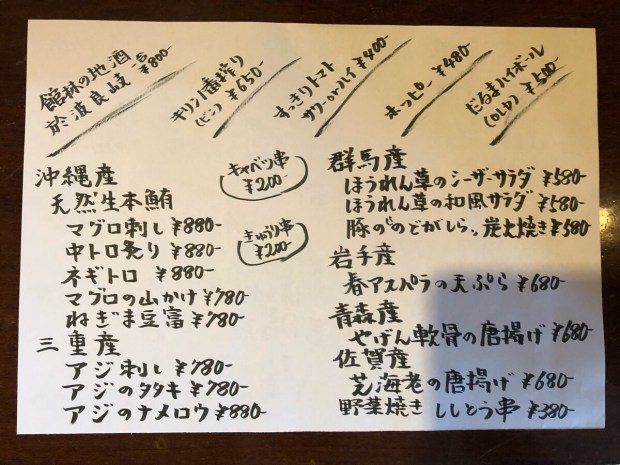 館林の地酒
於波良岐 一合 ¥800-
キリン一番搾り
(ビン) ¥650-
すっきりトマト
サワーorハイ ¥400-
ホッピー ¥480-
だるまハイボール
(OLD) ¥500-
沖縄産
天然生本鮪
マグロ刺し ¥880-
中トロ炙り ¥880-
ネギトロ ¥880-
マグロの山かけ ¥780-
ねぎま豆富 ¥780-
三重産
アジ刺し ¥780-
アジのタタキ ¥780-
アジのナメロウ ¥880-
キャベツ串
¥200-
きゅうり串
¥200-
群馬産
ほうれん草のシーザーサラダ ¥580-
ほうれん草の和風サラダ ¥580-
豚の"のどがしら"炭火焼き ¥580
岩手産
春アスパラの天ぷら ¥680-
青森産
やげん軟骨の唐揚げ ¥680-
佐賀産
芝海老の唐揚げ ¥680-
野菜焼き ししとう串 ¥380-